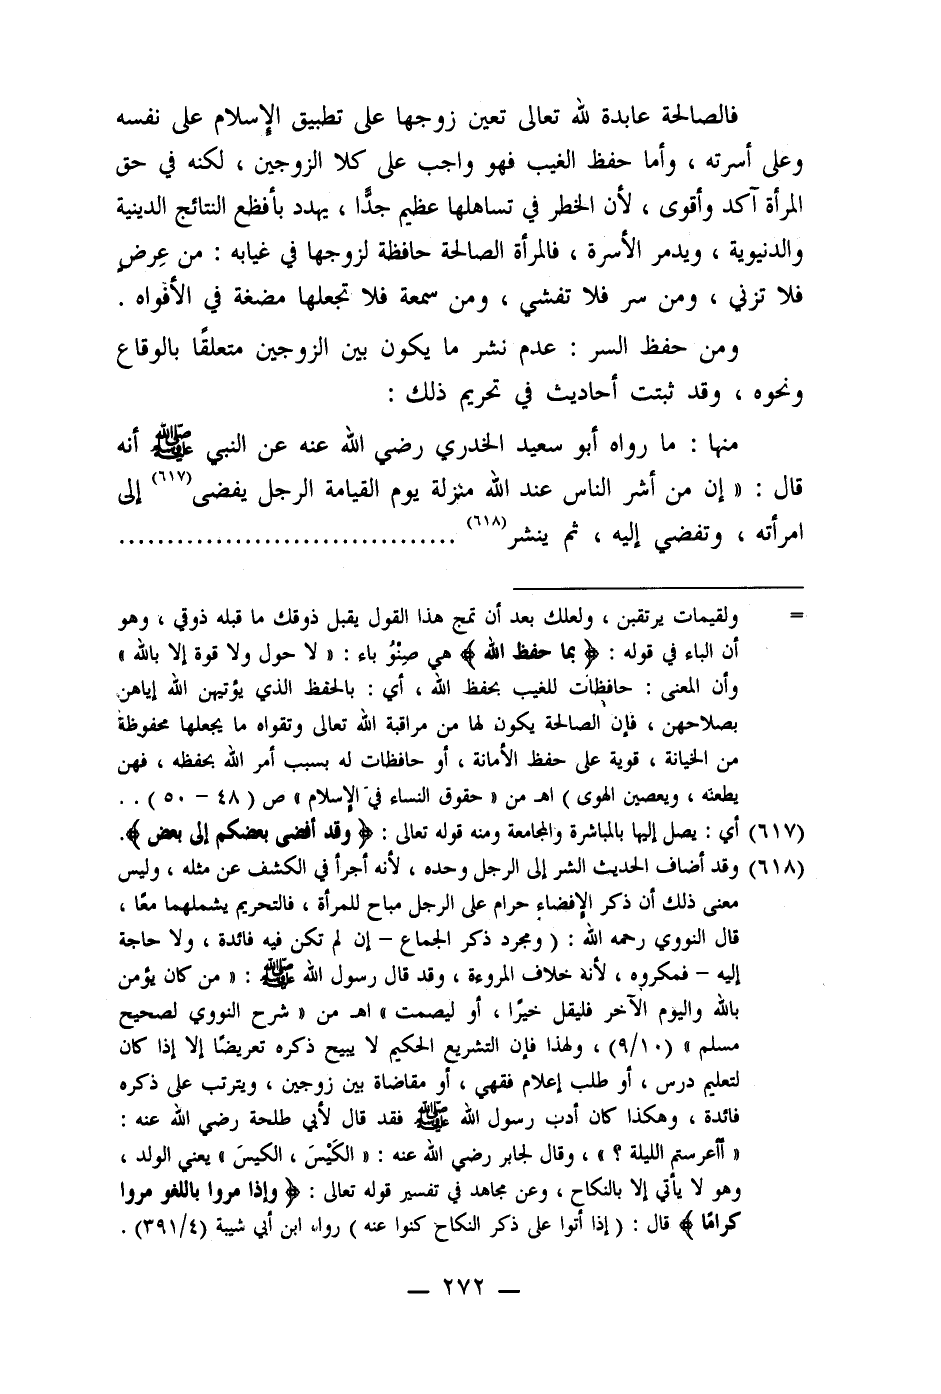 فالصالحة عابدة لله تعالى تعين زوجها على تطبيق الإسلام على نفسه
وعلى أسرته ، وأما حفظ الغيب فهو واجب على كلا الزوجين ، لكنه في حق
المرأة آكد وأقوى ، لأن الخطر في تساهلها عظيم جدًّا ، يهدد بأفظع النتائج الدينية
والدنيوية ، ويدمر الأسرة ، فالمرأة الصالحة حافظة لزوجها في غيابه : من عِرضٍ
فلا تزني ، ومن سر فلا تفشي ، ومن سمعة فلا تجعلها مضغة في الأفواه .
ومن حفظ السر : عدم نشر ما يكون بين الزوجين متعلقًا بالوقاع
ونحوه ، وقد ثبتت أحاديث في تحريم ذلك :
منها : ما رواه أبو سعيد الخدري رضي الله عنه عن النبي ﷺ أنه
قال : « إن من أشر الناس عند الله منزلة يوم القيامة الرجل يفضى(٦١٧) إلى
امرأته ، وتفضي إليه ، ثم ينشر(٦١٨) ..................................
= ولقيمات يرتقبن ، ولعلك بعد أن تمج هذا القول يقبل ذوقك ما قبله ذوقي ، وهو
أن الباء في قوله : ﴿ بما حفظ الله ﴾ هي صِنْوُ باء : « لا حول ولا قوة إلا بالله »
وأن المعنى : حافظات للغيب بحفظ الله ، أي : بالحفظ الذي يؤتيهن الله إياهن
بصلاحهن ، فإن الصالحة يكون لها من مراقبة الله تعالى وتقواه ما يجعلها محفوظة
من الخيانة ، قوية على حفظ الأمانة ، أو حافظات له بسبب أمر الله بحفظه ، فهن
يطعنه ، ويعصين الهوى ) اهـ من « حقوق النساء في الإسلام » ص ( ٤٨ – ٥٠ ) . .
(٦١٧) أي : يصل إليها بالمباشرة والمجامعة ومنه قوله تعالى : ﴿ وقد أفضى بعضكم إلى بعض ﴾.
(٦١٨) وقد أضاف الحديث الشر إلى الرجل وحده ، لأنه أجرأ في الكشف عن مثله ، وليس
معنى ذلك أن ذكر الإفضاء حرام على الرجل مباح للمرأة ، فالتحريم يشملهما معًا ،
قال النووي رحمه الله : ( ومجرد ذكر الجماع – إن لم تكن فيه فائدة ، ولا حاجة
إليه – فمكروه ، لأنه خلاف المروءة ، وقد قال رسول الله ﷺ : « من كان يؤمن
بالله واليوم الآخر فليقل خيرًا ، أو ليصمت » اهـ من « شرح النووي لصحيح
مسلم » (٩/١٠) ، ولهذا فإن التشريع الحكيم لا يبيح ذكره تعريضًا إلا إذا كان
لتعليم درس ، أو طلب إعلام فقهي ، أو مقاضاة بين زوجين ، ويترتب على ذكره
فائدة ، وهكذا كان أدب رسول الله ﷺ فقد قال لأبي طلحة رضي الله عنه :
« أأعرستم الليلة ؟ » ، وقال لجابر رضي الله عنه : « الكَيْسَ ، الكيسَ » يعني الولد ،
وهو لا يأتي إلا بالنكاح ، وعن مجاهد في تفسير قوله تعالى : ﴿ وإذا مروا باللغو مروا
كرامًا ﴾ قال : ( إذا أتوا على ذكر النكاح كنوا عنه ) رواه ابن أبي شيبة (٣٩١/٤) .
— ٢٧٢ —